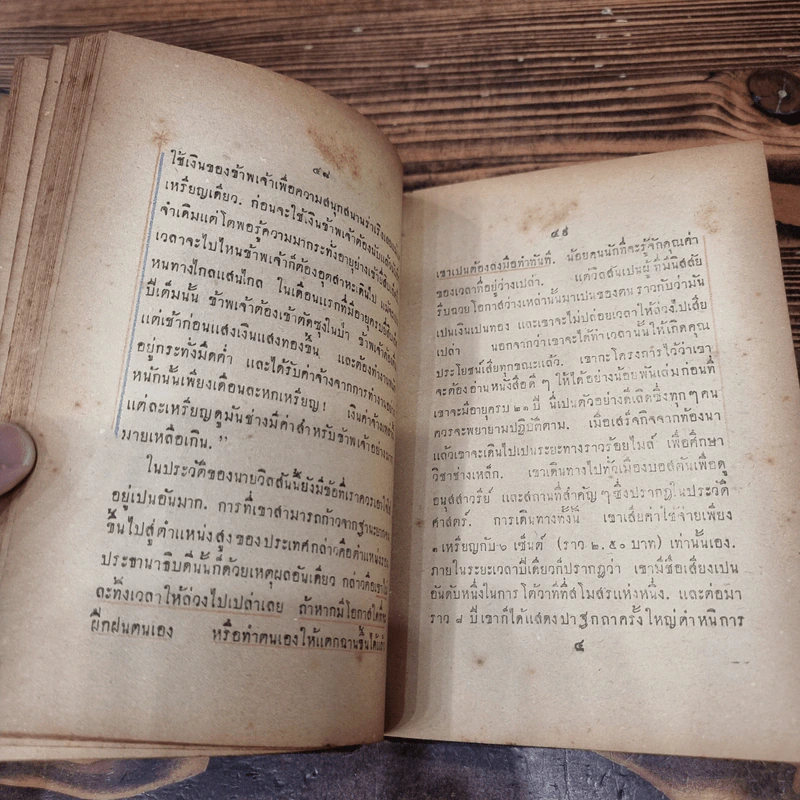 ๔๘
ใช้เงินของข้าพเจ้าเพื่อความสนุกสนานร่าเริง
เหรียญเดียว. ก่อนจะใช้เงินข้าพเจ้าต้องนับแล้ว
จำเดิมแต่โตพอรู้ความมากระทั่งอายุย่างเข้ายี่สิบ
เวลาจะไปไหนข้าพเจ้าก็ต้องอุตสาหะเดินไป
หนทางไกลแสนไกล ในเดือนแรกที่มีอายุครบยี่สิบ
ปีเต็มนั้น ข้าพเจ้าต้องเข้าตัดซุงในป่า ข้าพเจ้าต้อง
แต่เช้าก่อนแสงเงินแสงทองขึ้น และต้องทำงาน
อยู่กระทั่งมืดค่ำ และได้รับค่าจ้างจากการทำงาน
หนักนั้นเพียงเดือนละหกเหรียญ! เงินค่าจ้าง
แต่ละเหรียญดูมันช่างมีค่าสำหรับข้าพเจ้าอย่าง
มายเหลือเกิน.”
ในประวัติของนายวิลสันนี้ยังมีข้อที่เราควรเอา
อยู่เปนอันมาก. การที่เขาสามารถก้าวจากฐานะ
ขึ้นไปสู่ตำแหน่งสูงของประเทศกล่าวคือตำแหน่ง
ประธานาธิบดีนั้นก็ด้วยเหตุผลอันเดียว กล่าวคือ
ละทิ้งเวลาให้ล่วงไปเปล่าเลย ถ้าหากมีโอกาสใด
ฝึกฝนตนเอง หรือทำตนเองให้แตกฉานขึ้นได้แล้ว
๔๙
เขาเปนต้องลงมือทำทันที. น้อยคนนักที่จะรู้จักคุณค่า
ของเวลาที่อยู่ว่างเปล่า. แต่วิลสันเปนผู้ที่มีนิสสัย
รีบฉวยโอกาสว่างเหล่านั้นมาเปนของตน ราวกับว่ามัน
เปนเงินเปนทอง และเขาจะไม่ปล่อยเวลาให้ล่วงไปเสีย
เปล่า นอกจากว่าเขาจะได้ทำเวลานั้นให้เกิดคุณ
ประโยชน์เสียทุกขณะแล้ว. เขากะโครงการไว้ว่าเขา
จะต้องอ่านหนังสือดี ๆ ให้ได้อย่างน้อยพันเล่มก่อนที่
เขาจะมีอายุครบ ๒๑ ปี นี่เปนตัวอย่างดีเลิศซึ่งทุก ๆ คน
ควรจะพยายามปฏิบัติตาม. เมื่อเสร็จกิจจากท้องนา
แล้วเขาจะเดินไปเปนระยะทางราวร้อยไมล์ เพื่อศึกษา
วิชาช่างเหล็ก. เขาเดินทางไปทั่วเมืองบอสตันเพื่อดู
อนุสสาวรีย์ และสถานที่สำคัญ ๆ ซึ่งปรากฏในประวัติ
ศาสตร์. การเดินทางทั้งนี้ เขาเสียค่าใช้จ่ายเพียง
๑ เหรียญกับ ๖ เซ็นต์ (ราว ๒.๕๐ บาท) เท่านั้นเอง.
ภายในระยะเวลาปีเดียวก็ปรากฏว่า เขามีชื่อเสียงเปน
อันดับหนึ่งในการโต้วาทีที่สโมสรแห่งหนึ่ง. และต่อมา
ราว ๘ ปี เขาก็ได้แสดงปาฐกถาครั้งใหญ่ตำหนิการ
๔